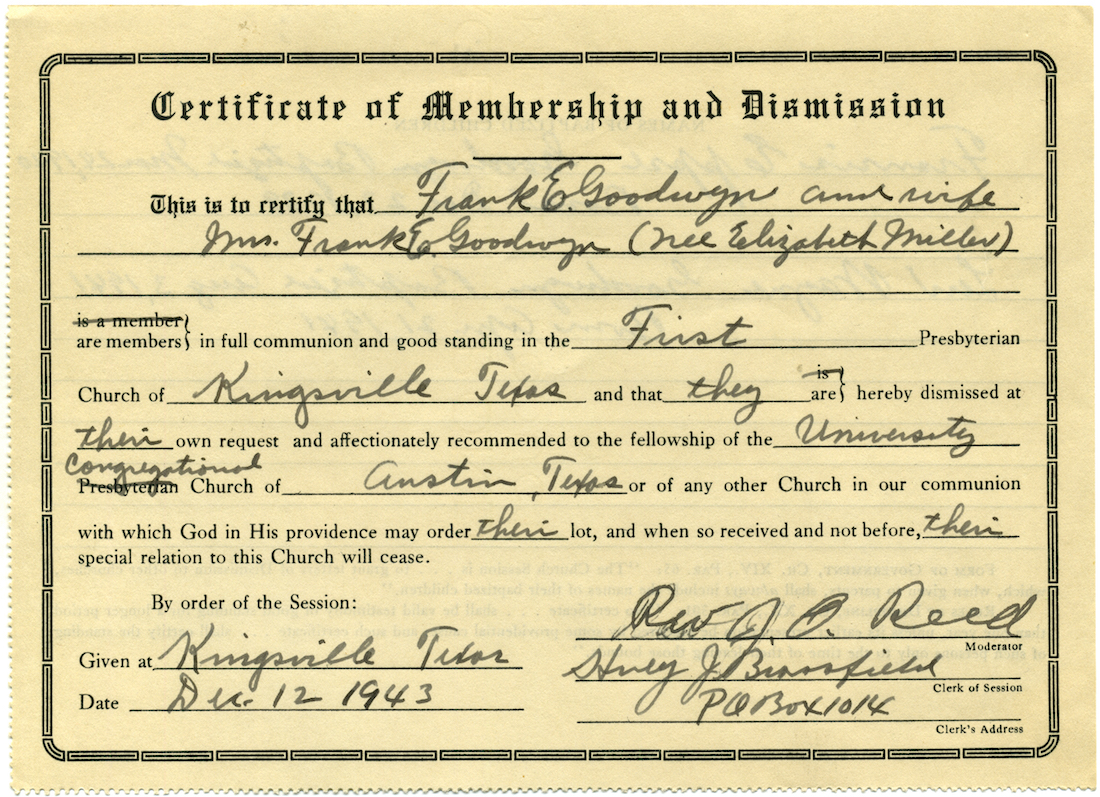 Certificate of Membership and Dismission
This is to certify that Frank E. Goodwyn and wife
Mrs. Frank E. Goodwyn (nee Elizabeth Miller)
is a member
are members } in full communion and good standing in the First Presbyterian
Church of Kingsville Texas and that they is are } hereby dismissed at
their own request and affectionately recommended to the fellowship of the University
Congregational
Presbyterian Church of Austin, Texas or of any other Church in our communion
with which God in His providence may order their lot, and when so received and not before, their
special relation to this Church will cease.
By order of the Session:
Rev J. A. Reed
Moderator
Given at Kingsville Texas
J. Brassfield
Clerk of Session
Date Dec. 12 1943
PO Box 1014
Clerk's Address